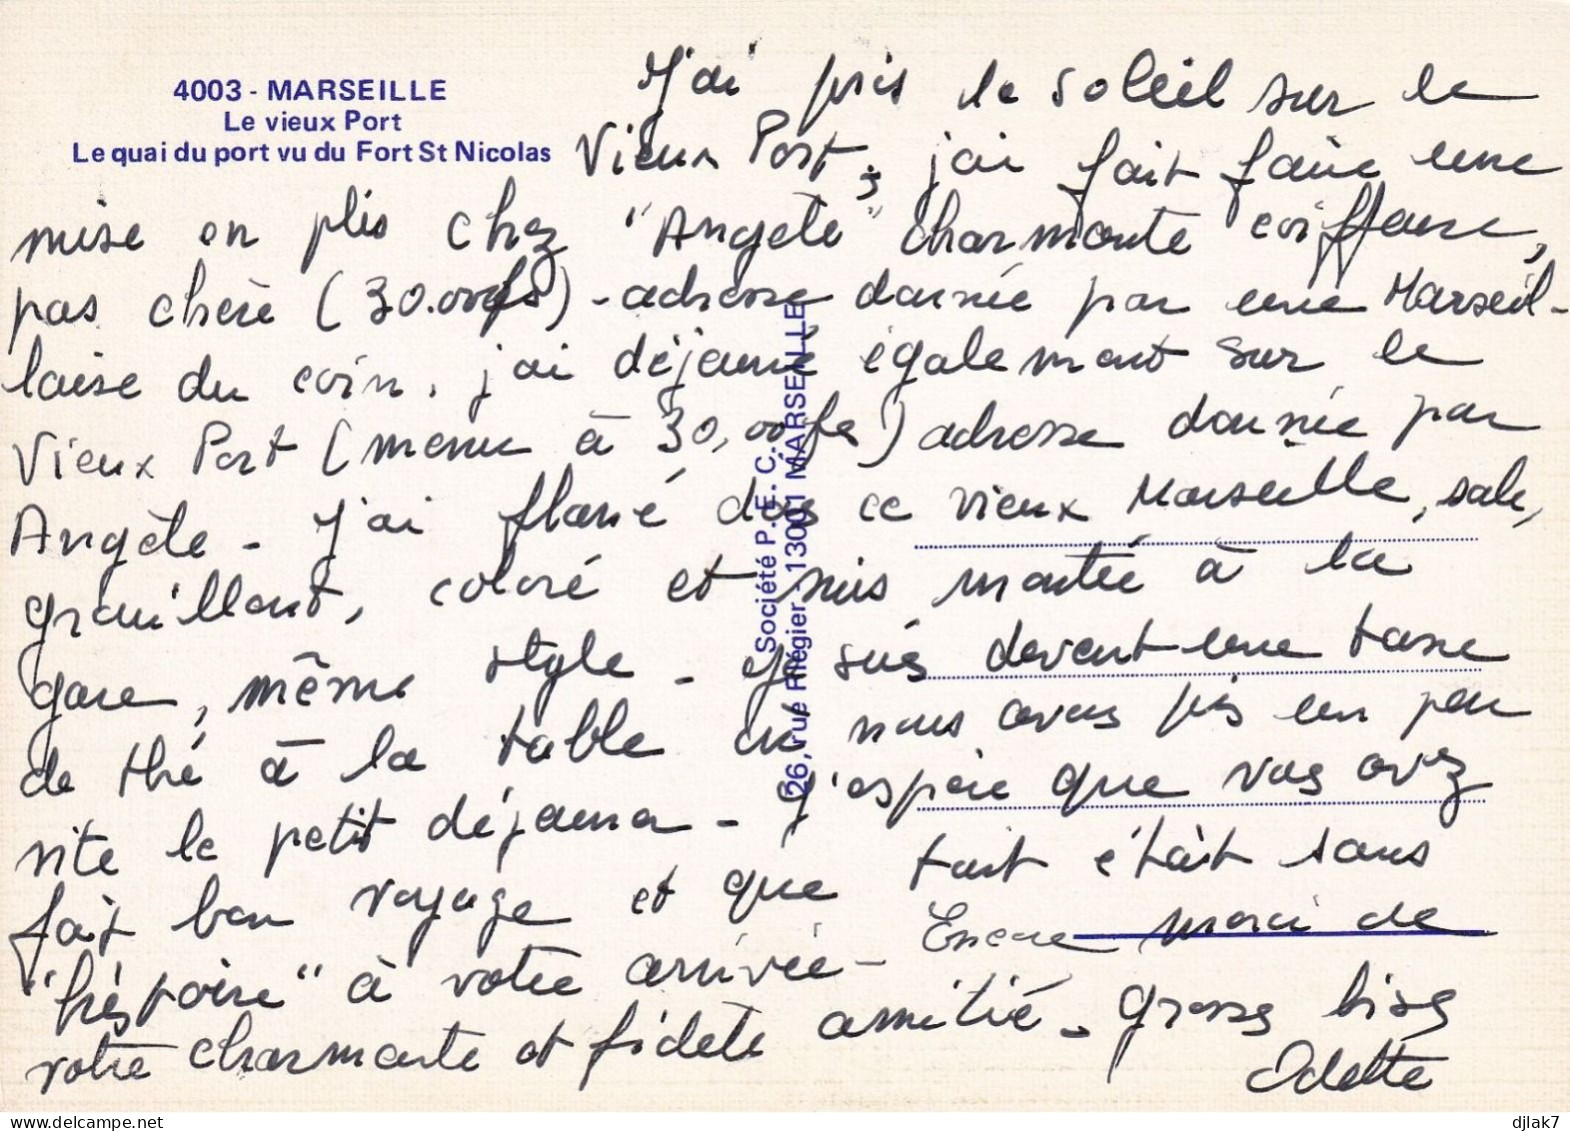 4003 - MARSEILLE
Le vieux Port
Le quai du port vu du Fort St Nicolas
J'ai pris le soleil sur le
Vieux Port, j'ai fait faire une
mise en plis chez "Angèle" charmante coiffeuse,
pas chère (30.00fs) - adresse donnée par une Marseil-
laise du coin. j'ai déjeuné également sur le
Vieux Port (menu à 30,00fs) adresse donnée par
Angèle - J'ai flané dans ce vieux Marseille, sale,
grouillant, coloré et suis montée à la
gare, même style - Je suis devant une tasse
de thé à la table où nous avons pris un peu
vite le petit déjeuner - J'espère que vous avez
fait bon voyage et que tout était sans
"histoire" à votre arrivée - Encore merci de
votre charmante et fidèle amitié - grosses bises
Odette
Société P.E.C.
26, rue Régier - 13001 MARSEILLE
djlak7